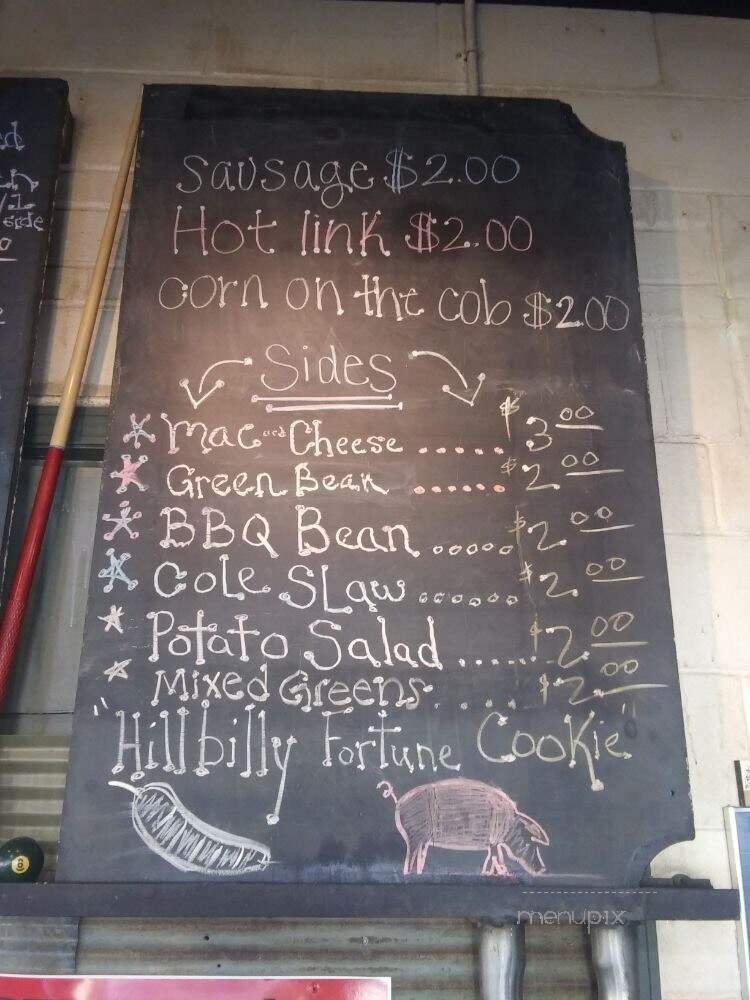 Sausage $2.00
Hot link $2.00
corn on the cob $2.00
Sides
Mac and Cheese ..... $3.00
Green Bean ...... $2.00
BBQ Bean ..... $2.00
Cole Slaw ...... $2.00
Potato Salad ...... $2.00
Mixed Greens. .... $2.00
"Hillbilly Fortune Cookie"
8
menupix